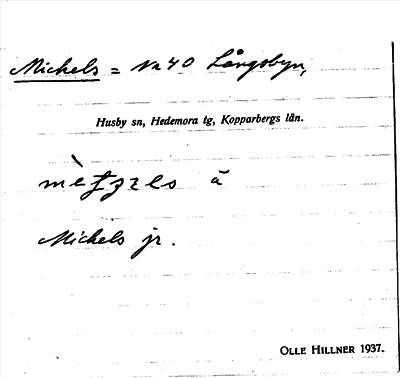 Michels = Nr 40 Långsbyn,
Husby sn, Hedemora tg, Kopparbergs län.
å
Michels jr.
OLLE HILLNER 1937.